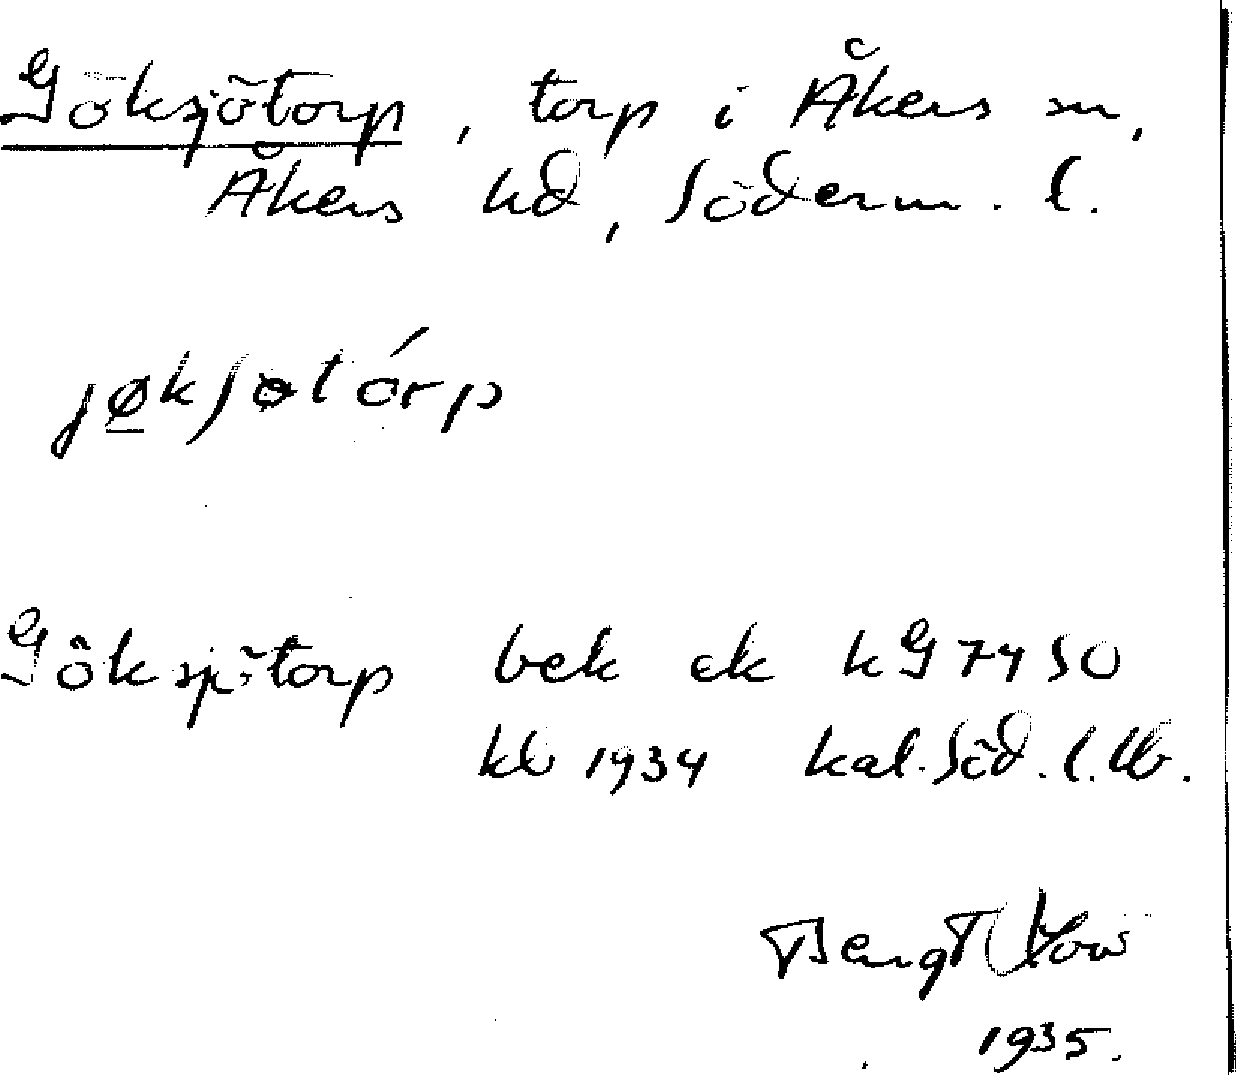 Göksjötorp, torp i Åkers sn,
Åkers hd, Söderm. l.
jøkʃøtórp
Göksjötorp bek ek kG 7450
kb 1934 kal. Söd. l. llv.
Bengt
1935.